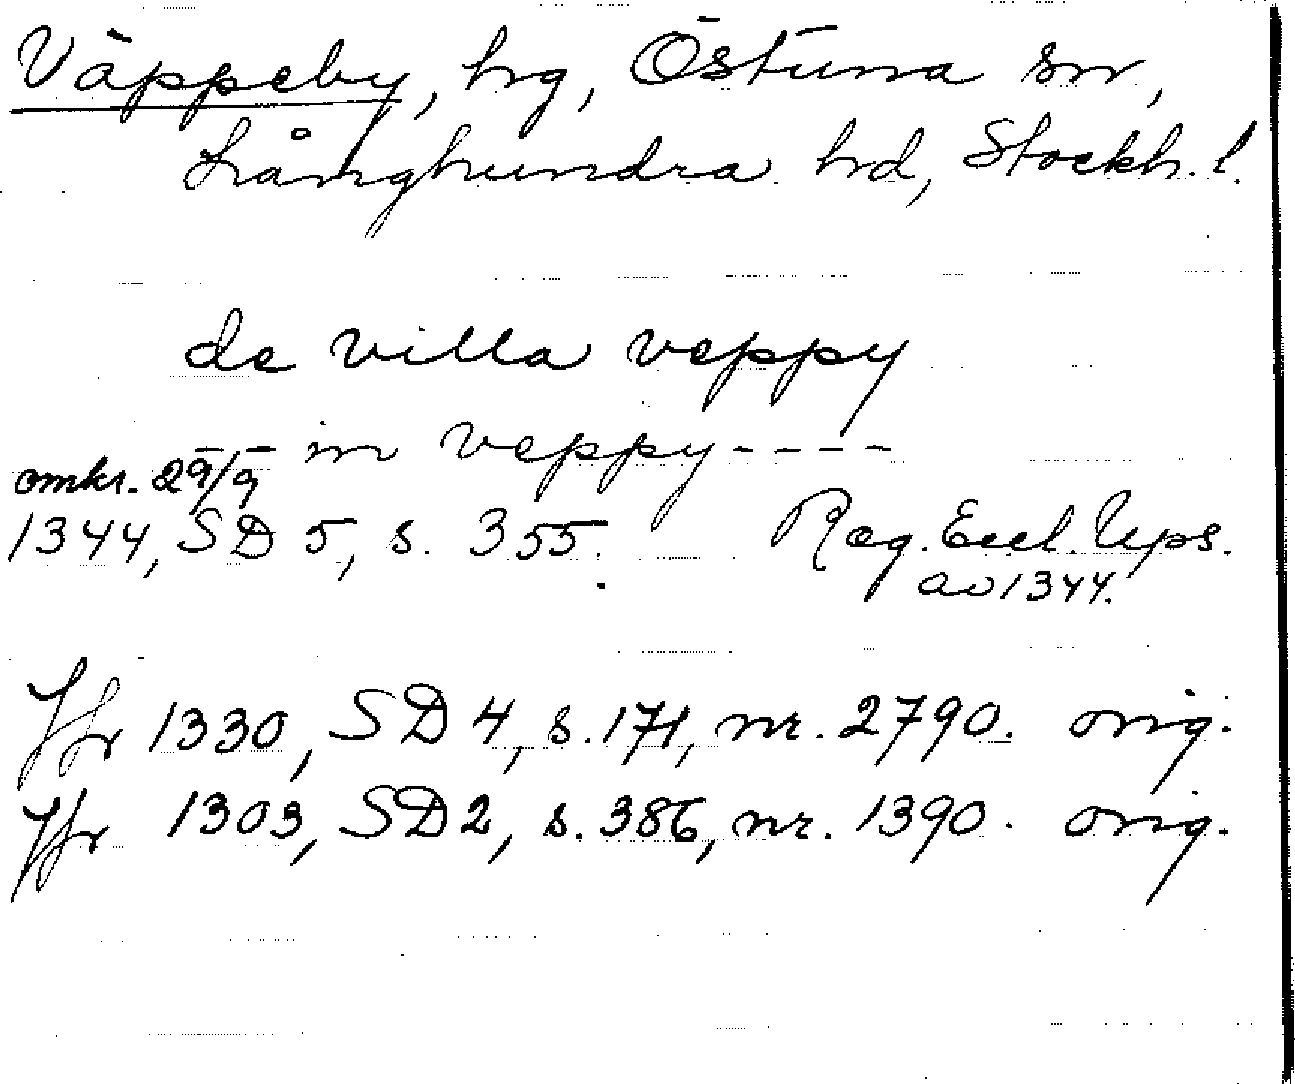 Väppeby, hg, Östuna sn,
Långhundra hd, Stockh. l.
de villa veppy
in veppy - - - -
omkr. 29/9
1344, SD 5, s. 355. Reg. Eccl. Ups.
av 1344.
Jfr 1330, SD 4, s. 171, nr. 2790. orig.
Jfr 1303, SD 2, s. 386, nr. 1390. orig.